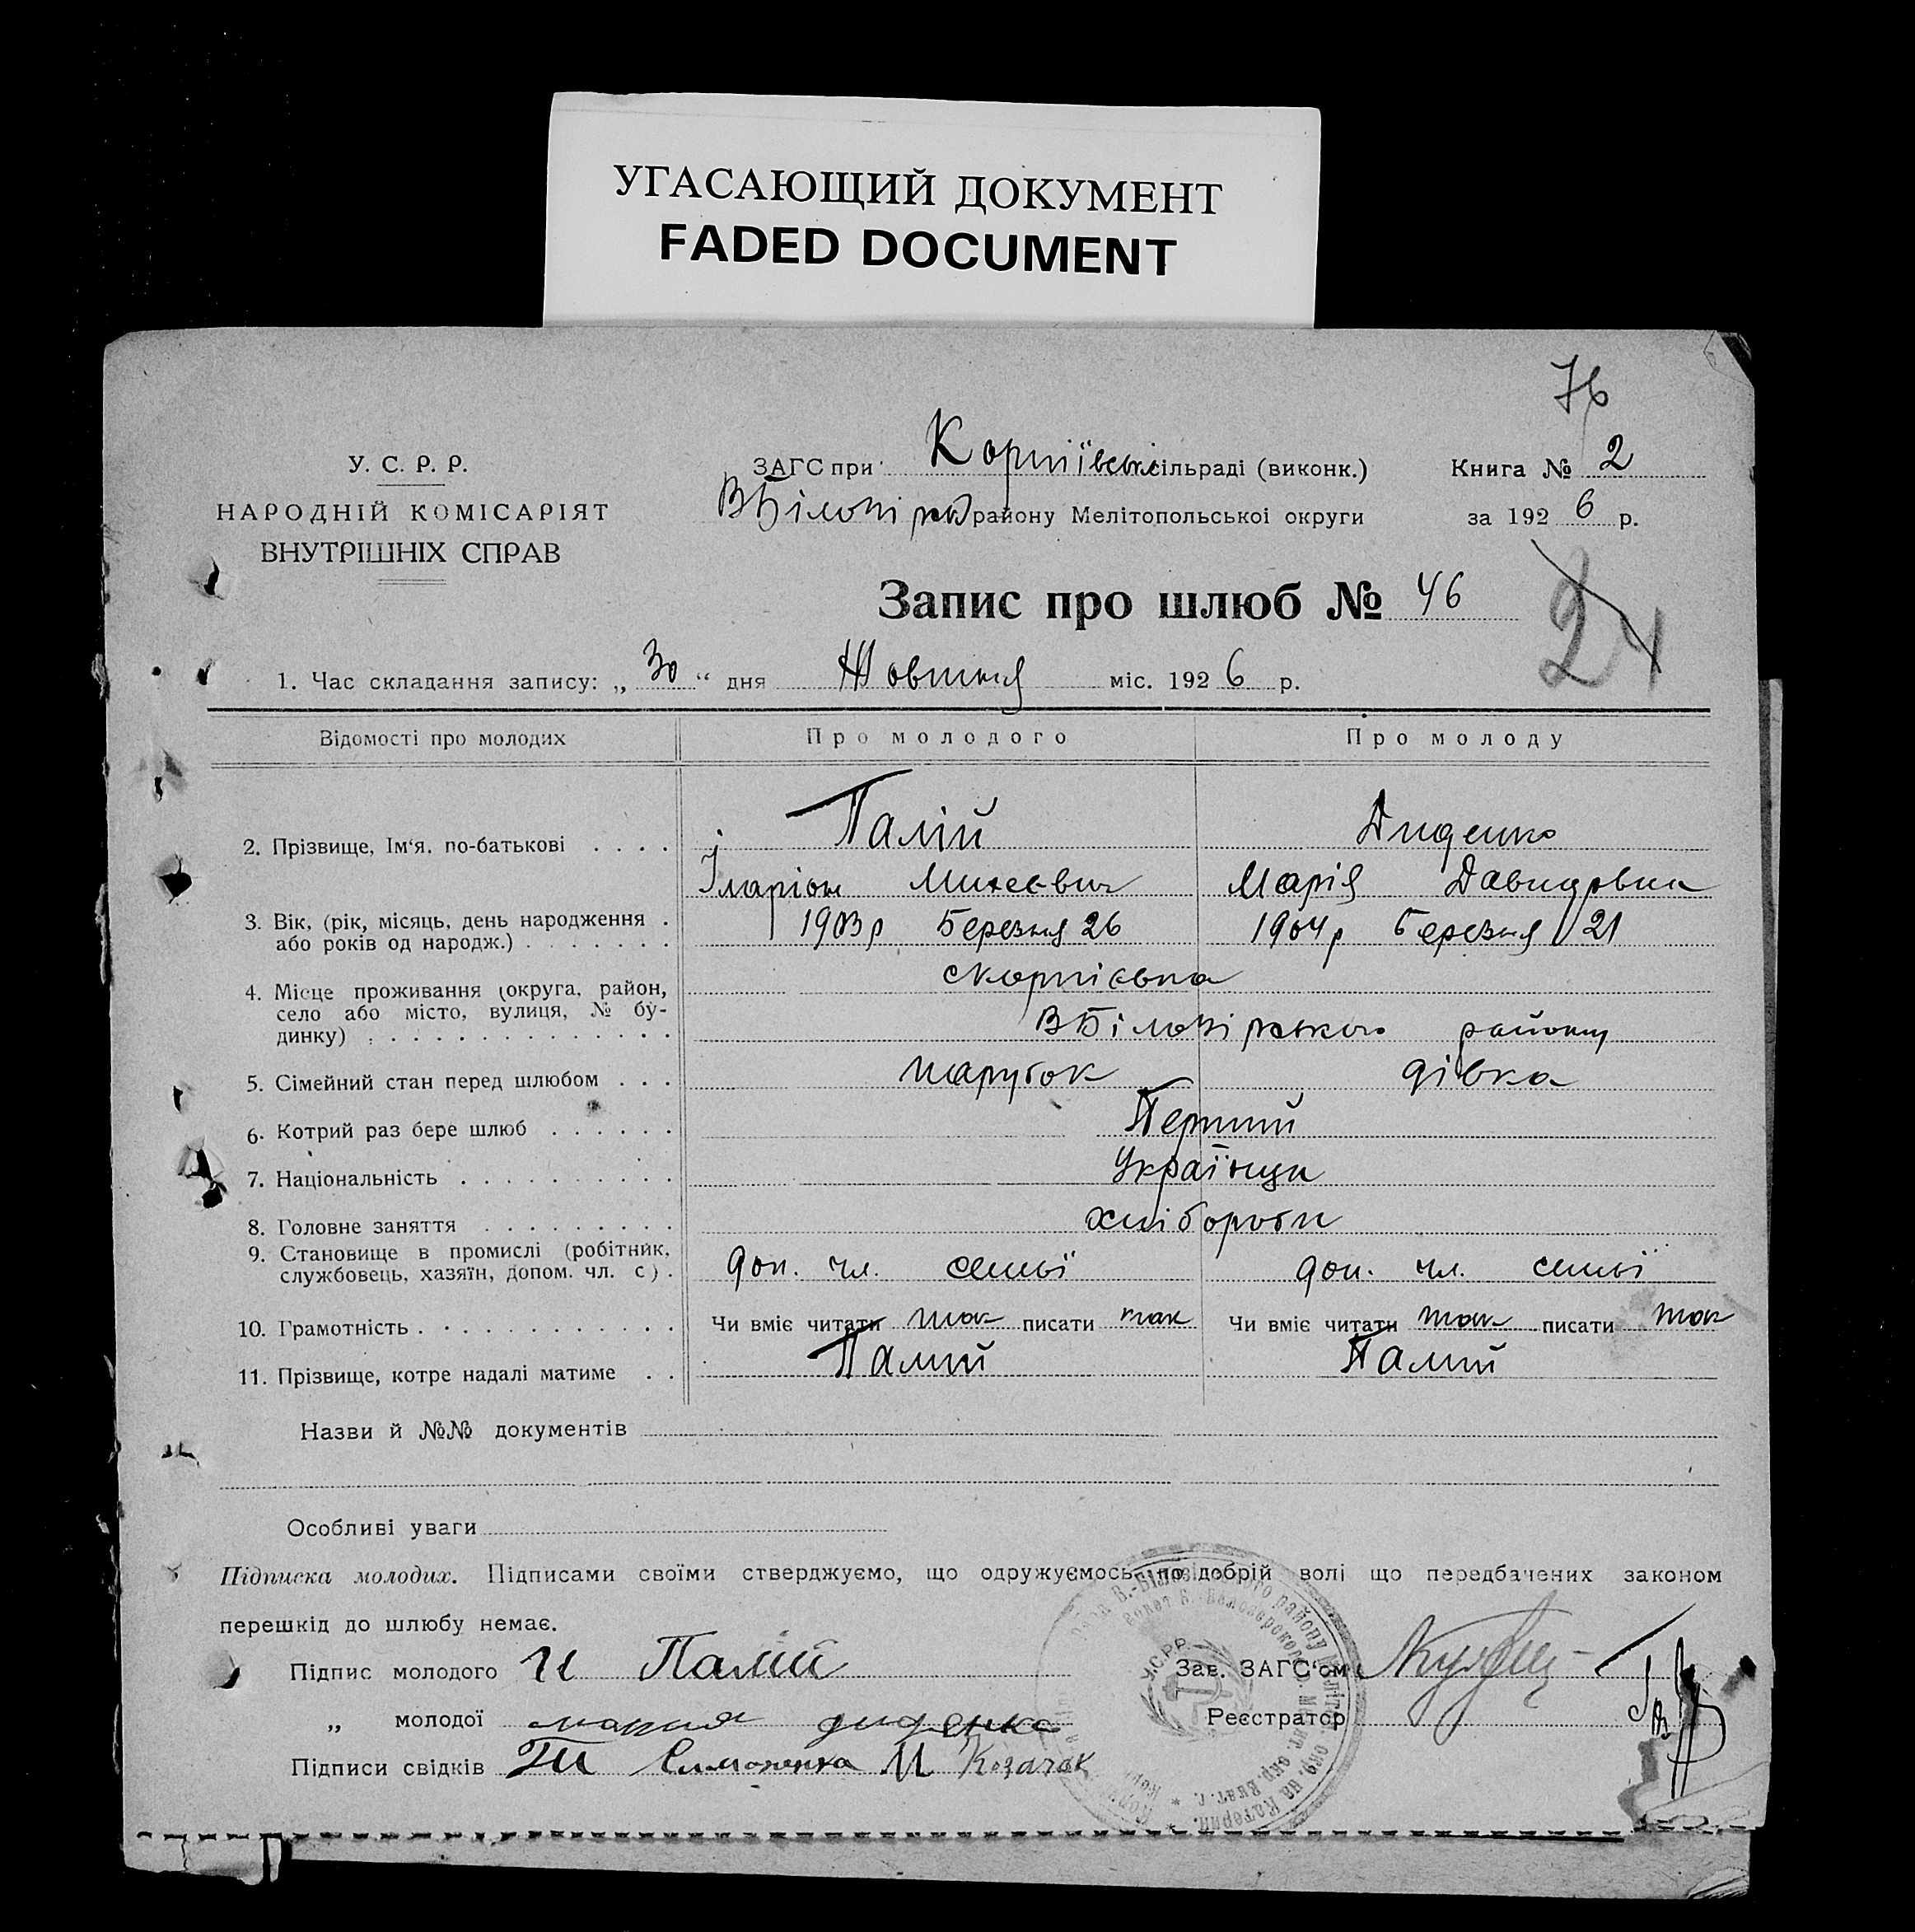 УГАСАЮЩИЙ ДОКУМЕНТ
FADED DOCUMENT
76
У. С. Р. Р.
НАРОДНІЙ КОМІСАРІЯТ
ВНУТРІШНІХ СПРАВ
ЗАГС при Корніївськ сільраді (виконк.)
ВБілозірськ району Мелітопольської округи
Книга № 2
за 1926 р.
Запис про шлюб № 46
24
1. Час складання запису: „30“ дня Жовтня міс. 1926 р.
Відомості про молодих Про молодого Про молоду
2. Прізвище, Ім‘я, по-батькові . . . . Палій Диденко
Іларіон Михеевич Марія Давидовна
3. Вік, (рік, місяць, день народження . 1903 р Березня 26 1904 р Березня 21
або років од народж.) . . . . . . .
4. Місце проживання (округа, район, с Корніевка
село або місто, вулиця, № бу-
динку) . . . . . . . . . . . . . . ВБілозірського району
5. Сімейний стан перед шлюбом . . . парубок дівка
6. Котрий раз бере шлюб . . . . . . Перший
7. Національність . . . . . . . . . . Українци
8. Головне заняття . . . . . . . . . хлібороби
9. Становище в промислі (робітник,
службовець, хазяїн, допом. чл. с) . доп. чл. семьї доп. чл. семьї
10. Грамотність . . . . . . . . . . . . Чи вміє читати так писати так Чи вміє читати так писати так
11. Прізвище, котре надалі матиме . . Палий Палий
Назви й №№ документів
Особливі уваги
Підписка молодих. Підписами своїми стверджуємо, що одружуємось по добрій волі що передбачених законом
перешкід до шлюбу немає.
Підпис молодого И Палій
Зав. ЗАГС‘ом
„ молодої мария диденко
Реєстратор
Підписи свідків Симоненко И Козачок
У.С.Р.Р.